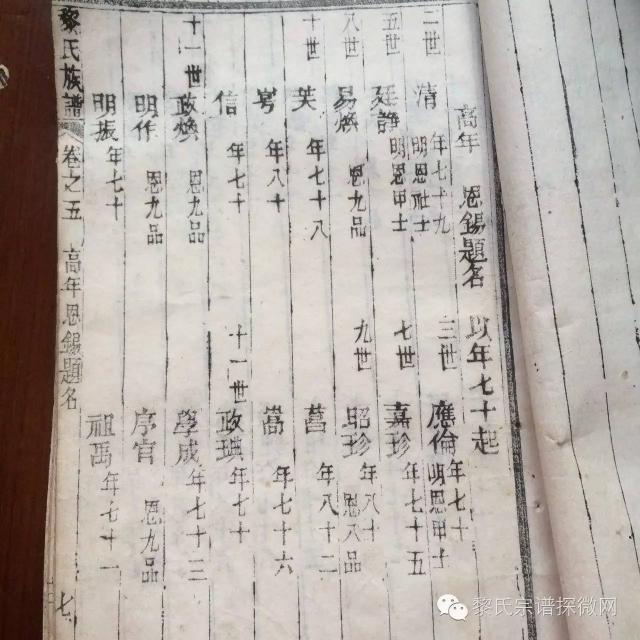 高年 恩錫題名 以年七十起
二世 清 年七十九 明恩祖士 三世 應倫 年七十 明恩甲士
五世 廷諍 明恩甲士 七世 嘉珍 年七十五
八世 易燉 恩九品 九世 昭珍 年八十 恩八品
十世 英 年七十八 萬 年八十二
年八十 嵩 年七十六
信 年七十 十一世 政璵 年七十
十一世 政煥 恩九品 學成 年七十三
明作 恩九品 序宵 恩九品
明振 年七十 祖禹 年七十一
黎氏族譜 卷之五 高年恩錫題名 七
黎氏宗谱探微网